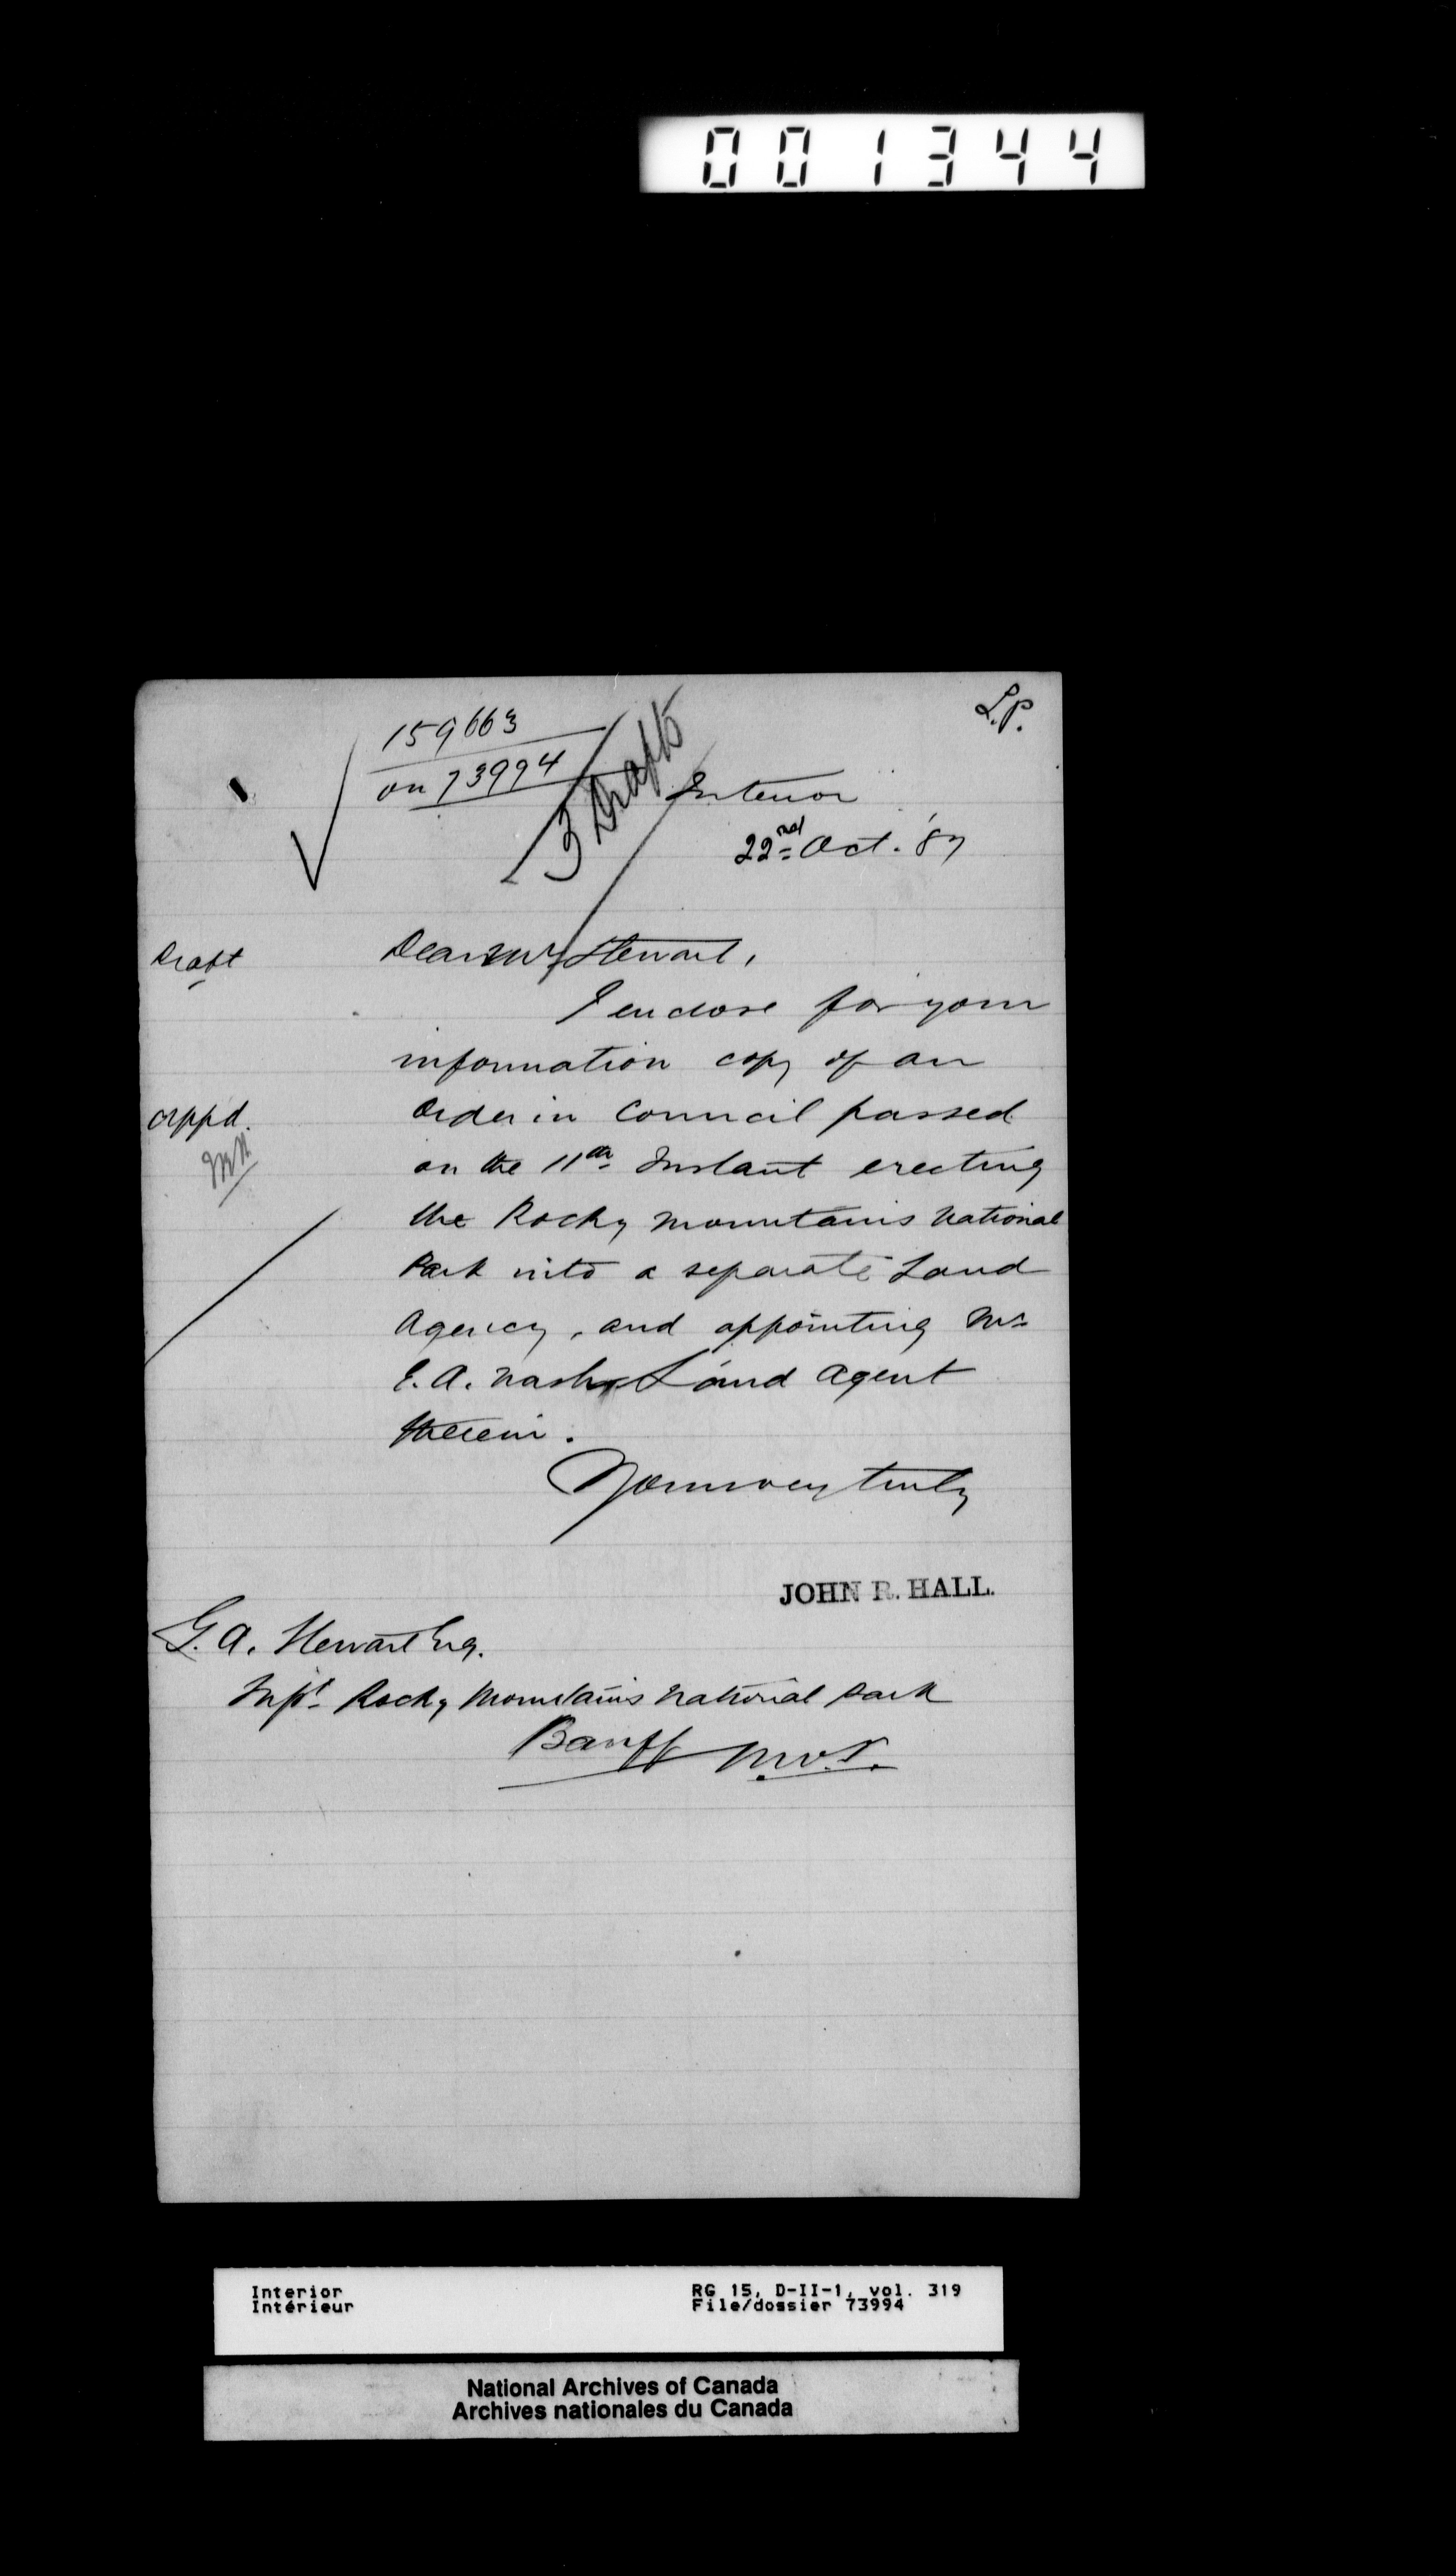 001344
L.P.
159663
on 73994
3 Drafts
Interior
22nd Oct. '87
Draft
Dear Mr Stewart,
I enclose for your
information copy of an
Order in Council passed
appd.
on the 11th Instant erecting
the Rocky Mountains National
Park into a separate Land
Agency, and appointing Mr
E. A. Nash Land Agent
therein.
Yours very truly
JOHN R. HALL.
G. A. Stewart Esq.
Supt Rocky Mountains National Park
Banff N.W.T.
Interior
Intérieur
RG 15, D-II-1, vol. 319
File/dossier 73994
National Archives of Canada
Archives nationales du Canada